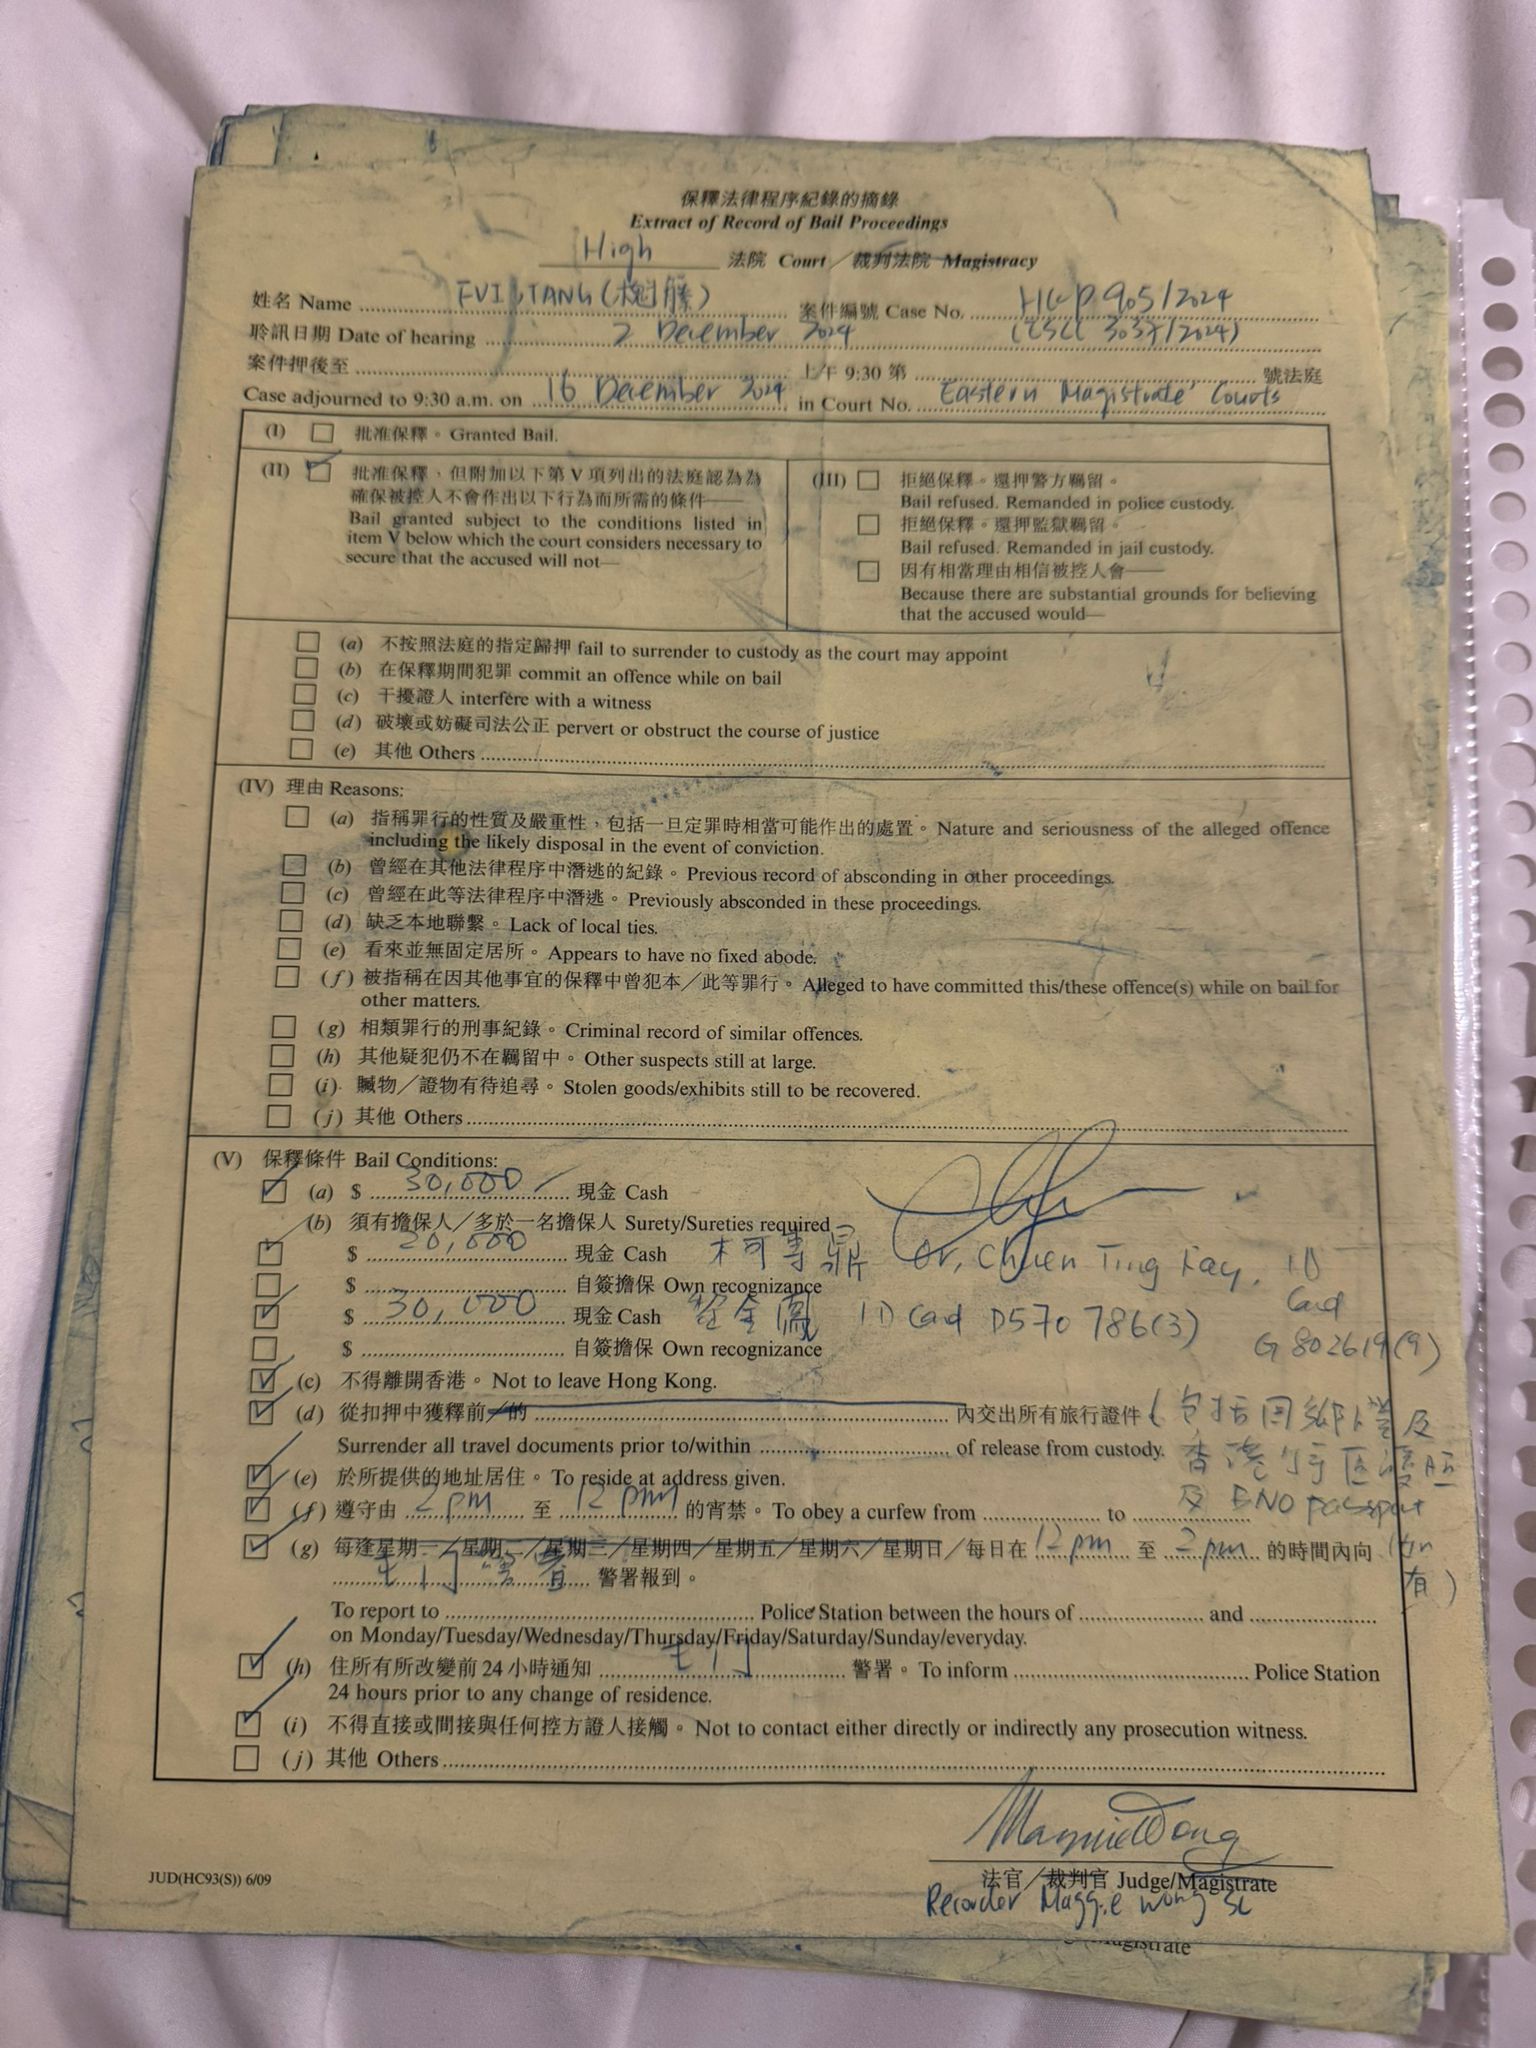 保釋法律程序紀錄的摘錄
Extract of Record of Bail Proceedings
High 法院 Court／裁判法院 Magistracy
姓名 Name 案件編號 Case No. 905/2024
聆訊日期 Date of hearing 2 December 2024 3037/2024)
案件押後至 上午 9:30 第 號法庭
Case adjourned to 9:30 a.m. on 16 December 2024 in Court No. Eastern Magistrate' Courts
(I) 批准保釋。Granted Bail.
(II) 批准保釋，但附加以下第 V 項列出的法庭認為為
確保被控人不會作出以下行為而所需的條件——
Bail granted subject to the conditions listed in
item V below which the court considers necessary to
secure that the accused will not—
(III) 拒絕保釋。還押警方羈留。
Bail refused. Remanded in police custody.
拒絕保釋。還押監獄羈留。
Bail refused. Remanded in jail custody.
因有相當理由相信被控人會——
Because there are substantial grounds for believing
that the accused would—
(a) 不按照法庭的指定歸押 fail to surrender to custody as the court may appoint
(b) 在保釋期間犯罪 commit an offence while on bail
(c) 干擾證人 interfere with a witness
(d) 破壞或妨礙司法公正 pervert or obstruct the course of justice
(e) 其他 Others
(IV) 理由 Reasons:
(a) 指稱罪行的性質及嚴重性，包括一旦定罪時相當可能作出的處置。Nature and seriousness of the alleged offence
including the likely disposal in the event of conviction.
(b) 曾經在其他法律程序中潛逃的紀錄。Previous record of absconding in other proceedings.
(c) 曾經在此等法律程序中潛逃。Previously absconded in these proceedings.
(d) 缺乏本地聯繫。Lack of local ties.
(e) 看來並無固定居所。Appears to have no fixed abode.
(f) 被指稱在因其他事宜的保釋中曾犯本／此等罪行。Alleged to have committed this/these offence(s) while on bail for
other matters.
(g) 相類罪行的刑事紀錄。Criminal record of similar offences.
(h) 其他疑犯仍不在羈留中。Other suspects still at large.
(i) 贓物／證物有待追尋。Stolen goods/exhibits still to be recovered.
(j) 其他 Others
(V) 保釋條件 Bail Conditions:
(a) $ 30,000 現金 Cash
(b) 須有擔保人／多於一名擔保人 Surety/Sureties required
$ 20,000 現金 Cash Ting Kay, ID
$ 自簽擔保 Own recognizance Card
$ 30,000 現金 Cash ID Card D570 786(3)
$ 自簽擔保 Own recognizance G 802619(9)
(c) 不得離開香港。Not to leave Hong Kong.
(d) 從扣押中獲釋前／的 內交出所有旅行證件 (包括回鄉證及
Surrender all travel documents prior to/within of release from custody. 香港特區護照
(e) 於所提供的地址居住。To reside at address given.
及 BNO passport
(f) 遵守由 2pm 至 12pm 的宵禁。To obey a curfew from to
(g) 每逢星期一／星期二／星期三／星期四／星期五／星期六／星期日／每日在 12pm 至 2pm 的時間內向 (如
屯門警署 警署報到。 有)
To report to Police Station between the hours of and
on Monday/Tuesday/Wednesday/Thursday/Friday/Saturday/Sunday/everyday.
(h) 住所有所改變前 24 小時通知 屯門 警署。To inform Police Station
24 hours prior to any change of residence.
(i) 不得直接或間接與任何控方證人接觸。Not to contact either directly or indirectly any prosecution witness.
(j) 其他 Others
法官／裁判官 Judge/Magistrate
JUD(HC93(S)) 6/09
Recorder Maggie Wong SC
Magistrate